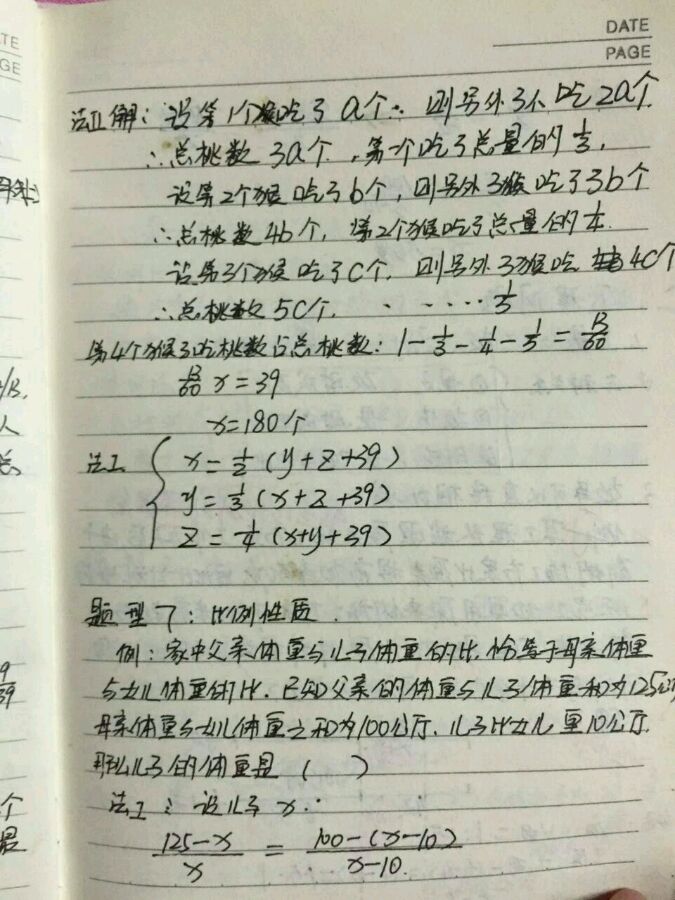 DATE
PAGE
法Ⅱ解：设第1个猴吃了a个∴ 则另外3个吃2a个
∴总桃数3a个，第一个吃了总量的1/3，
设第2个猴吃了b个，则另外3猴吃了3b个
∴总桃数4b个，第2个猴吃了总量的1/4.
设第3个猴吃了C个，则另外3猴吃4C个
∴总桃数5C个，·····1/5
第4个猴子吃桃数占总桃数：1-1/3-1/4-1/5=13/60
13/60 x=39
x=180个
法I { x=1/2(y+z+39)
y=1/3(x+z+39)
z=1/4(x+y+39)
题型7：比例性质.
例：家中父亲体重与儿子体重的比，恰等于母亲体重
与女儿体重的比，已知父亲的体重与儿子体重和为125公斤
母亲体重与女儿体重之和为100公斤，儿子比女儿重10公斤.
那么儿子的体重是（ ）
法I：设儿子x∴
(125-x)/x = (100-(x-10))/(x-10)